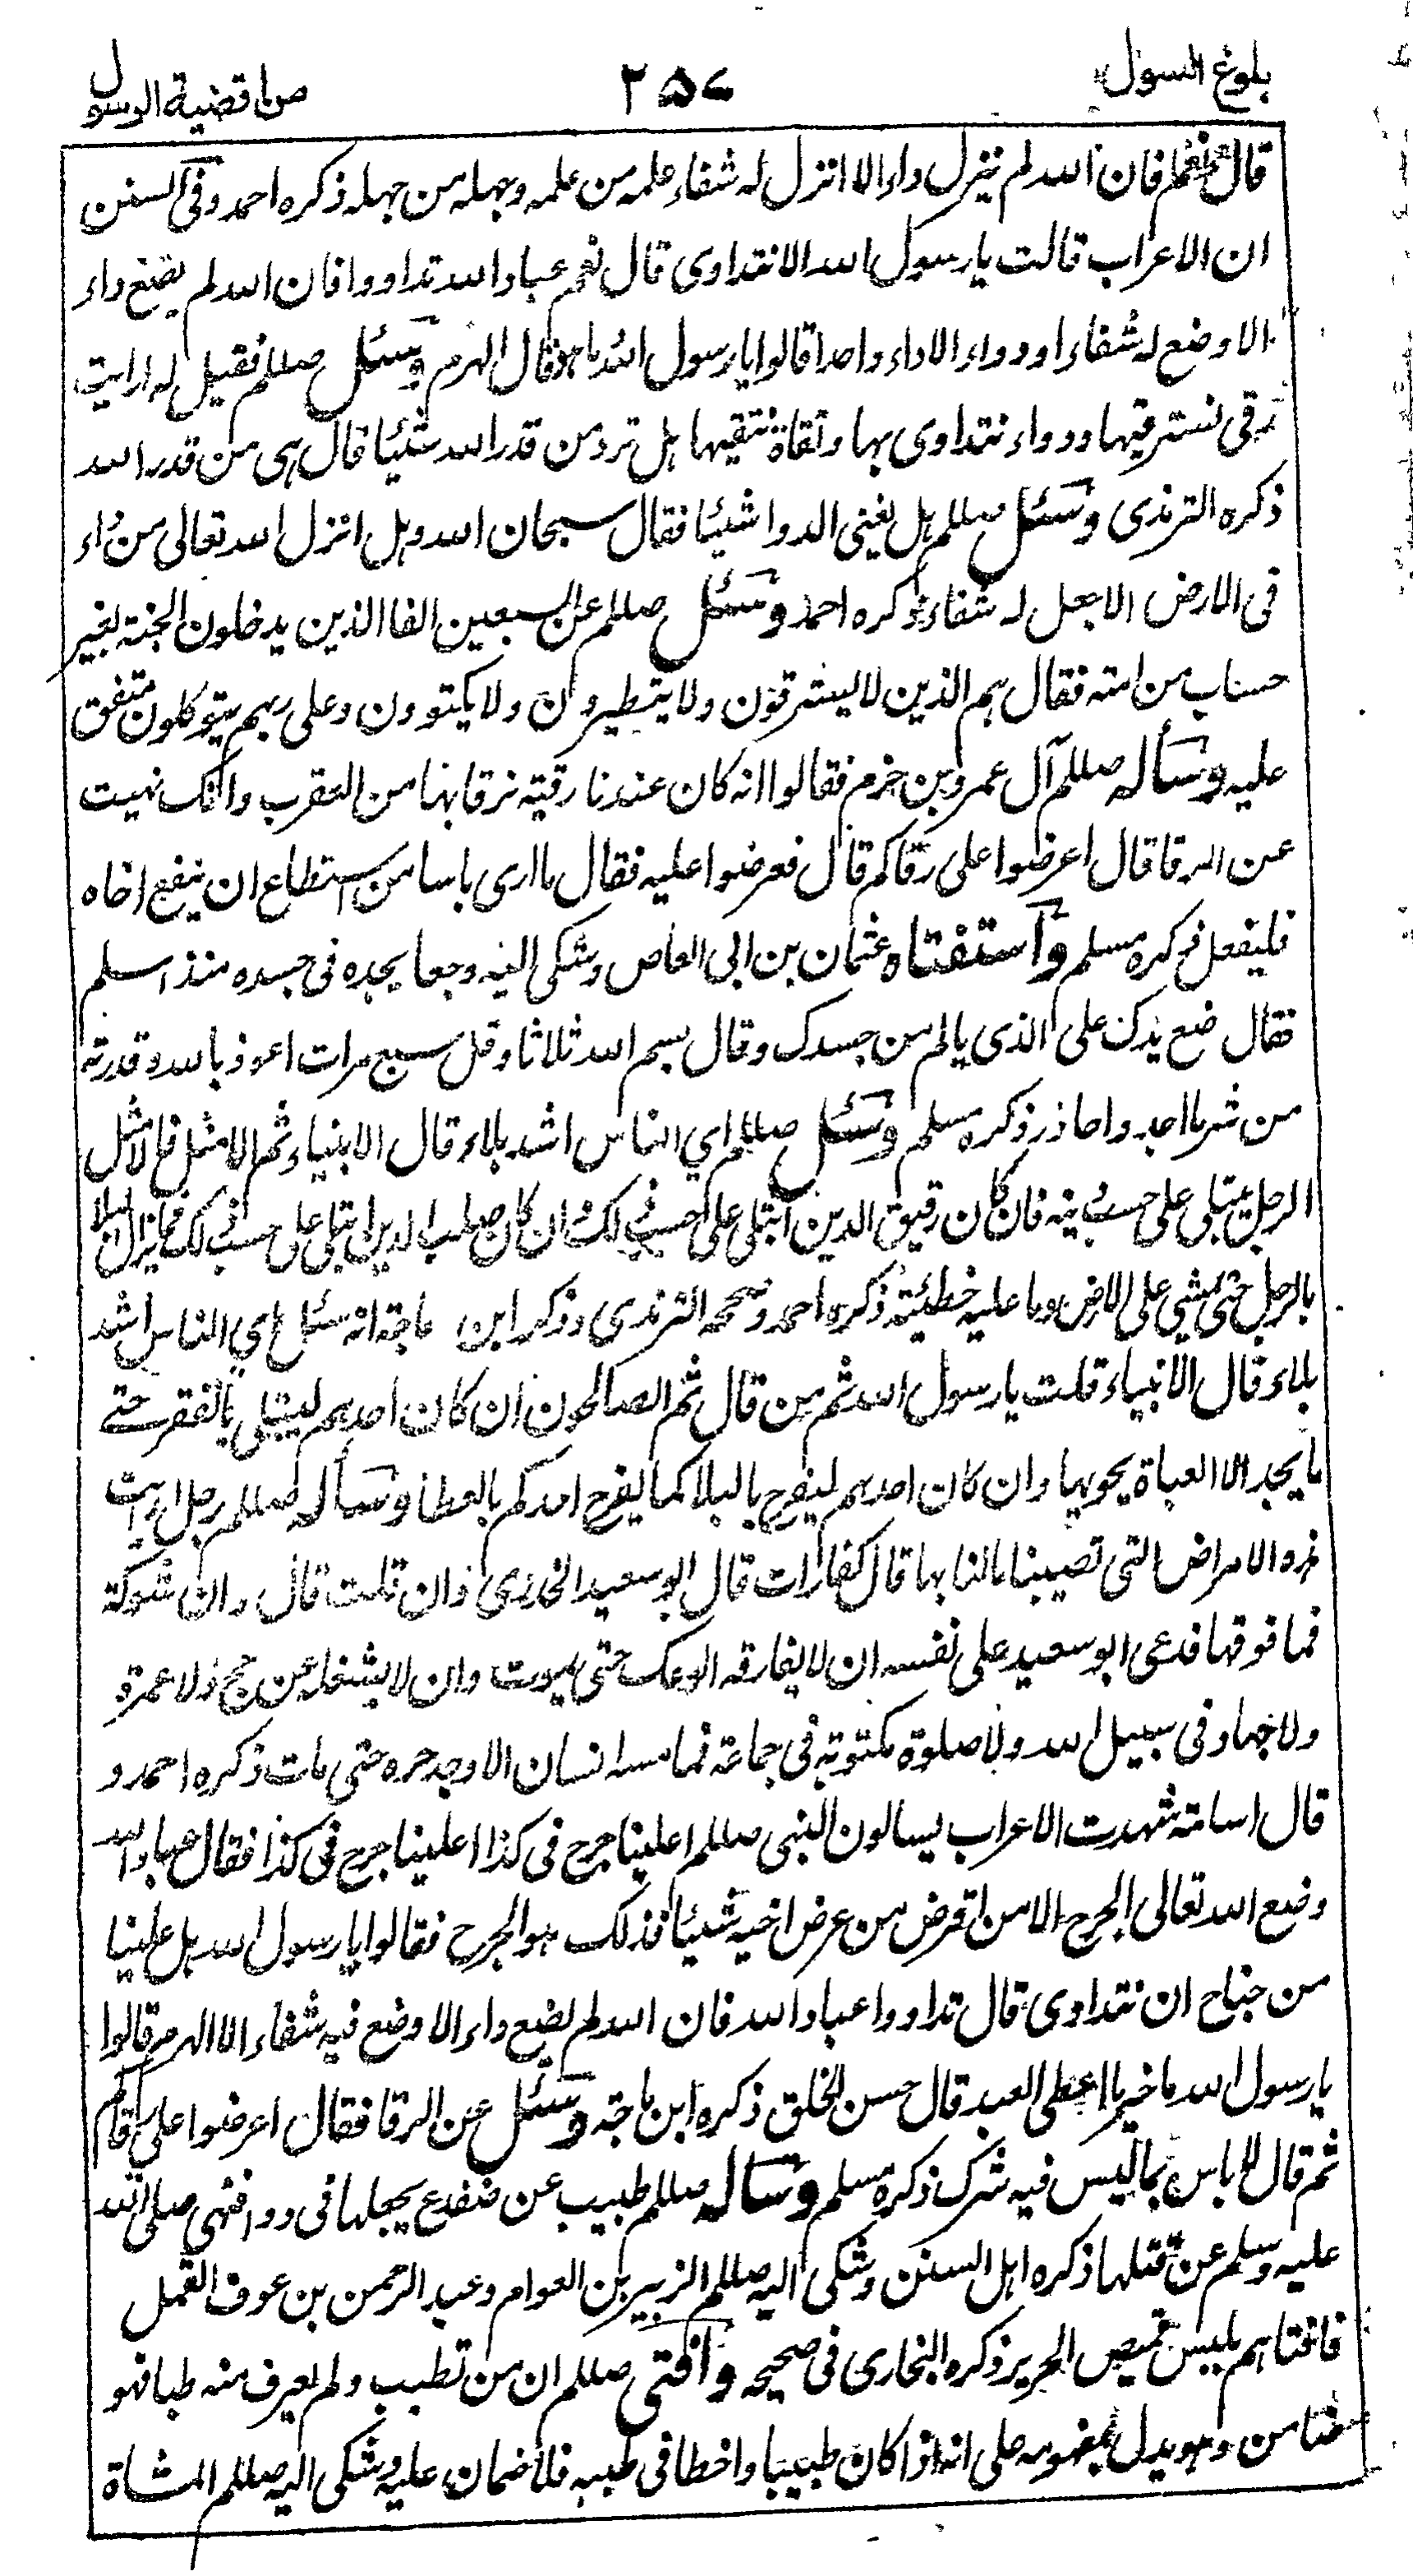 بلوغ السول
٢٥٧
من اقضية الرسول
قال نعم فان الله لم ينزل داء الا انزل له شفاء علمه من علمه وجهله من جهله ذكره احمد وفى السنن
ان الاعراب قالت يا رسول الله الا نتداوى قال نعم عباد الله تداووا فان الله لم يضع داء
الا وضع له شفاء او دواء الا داء واحدا قالوا يا رسول الله ما هو قال الهرم وسئل صللم فقيل له ارايت
رقى نسترقيها ودواء نتداوى بها وتقاة نتقيها هل ترد من قدر الله شيئا قال هى من قدر الله
ذكره الترمذى وسئل صللم هل يغنى الدوا شيئا فقال سبحان الله وهل انزل الله تعالى من داء
فى الارض الا جعل له شفاء ذكره احمد وسئل صللم عن السبعين الفا الذين يدخلون الجنة بغير
حساب من امته فقال هم الذين لا يسترقون ولا يتطيرون ولا يكتوون وعلى ربهم يتوكلون متفق
عليه وسأله صللم آل عمرو بن حزم فقالوا انه كان عندنا رقية نرقا بها من العقرب وانك نهيت
عن الرقا قال اعرضوا على رقاكم قال فعرضوا عليه فقال ما ارى باسا من استطاع ان ينفع اخاه
فليفعل ذكره مسلم واستفتاه عثمان بن ابى العاص وشكى اليه وجعا يجده فى جسده منذ اسلم
فقال ضع يدك على الذى يالم من جسدك وقال بسم الله ثلاثا وقل سبع مرات اعوذ بالله وقدرته
من شر ما اجد واحاذر ذكره مسلم وسئل صللم اي الناس اشد بلاء قال الانبياء ثم الامثل فالامثل
الرجل يبتلى على حسب دينه فان كان رقيق الدين ابتلى على حسب ذلك وان كان صلب الدين ابتلى على حسب ذلك فما يزال البلا
بالرجل حتى يمشي على الارض وما عليه خطيئة ذكره احمد وصححه الترمذى وذكر ابن ماجة انه سئل اي الناس اشد
بلاء قال الانبياء قلت يا رسول الله ثم من قال ثم الصالحون ان كان احدهم ليبتلى بالفقر حتے
ما يجد الا العباة يحويها وان كان احدهم ليفرح بالبلا كما يفرح احدكم بالعطا وسأله صللم رجل ارايت
هذه الامراض التى تصيبنا مالنا بها قال كفارات قال ابو سعيد الخدرى وان قلت قال وان شوكة
فما فوقها فدعى ابو سعيد على نفسه ان لا يفارقه الوعك حتى يموت وان لا يشغله عن حج ولا عمرة
ولا جهاد فى سبيل الله ولا صلوة مكتوبة فى جماعة فما مسه انسان الا وجد حره حتى مات ذكره احمد و
قال اسامة شهدت الاعراب يسالون النبى صللم اعلينا حرج فى كذا اعلينا حرج فى كذا فقال عباد الله
وضع الله تعالى الحرج الا من اقترض من عرض اخيه شيئا فذلك هو الحرج فقالوا يا رسول الله هل علينا
من جناح ان نتداوى قال تداووا عباد الله فان الله لم يضع داء الا وضع فيه شفاء الا الهرم قالوا
يا رسول الله ما خير ما اعطى العبد قال حسن الخلق ذكره ابن ماجة وسئل عن الرقا فقال اعرضوا على رقاكم
ثم قال لا باس بما ليس فيه شرك ذكره مسلم وسأله صللم طبيب عن ضفدع يجعلها فى دوا فنهى صلى الله
عليه وسلم عن قتلها ذكره اهل السنن وشكى اليه صللم الزبير بن العوام وعبد الرحمن بن عوف القمل
فافتاهم بلبس قميص الحرير ذكره البخارى فى صحيحه وافتى صللم ان من تطبب ولم يعرف منه طبا فهو
ضامن وهو يدل بمفهومه على انه اذا كان طبيبا واخطا فى طببه فلا ضمان عليه وشكى اليه صللم المشاة